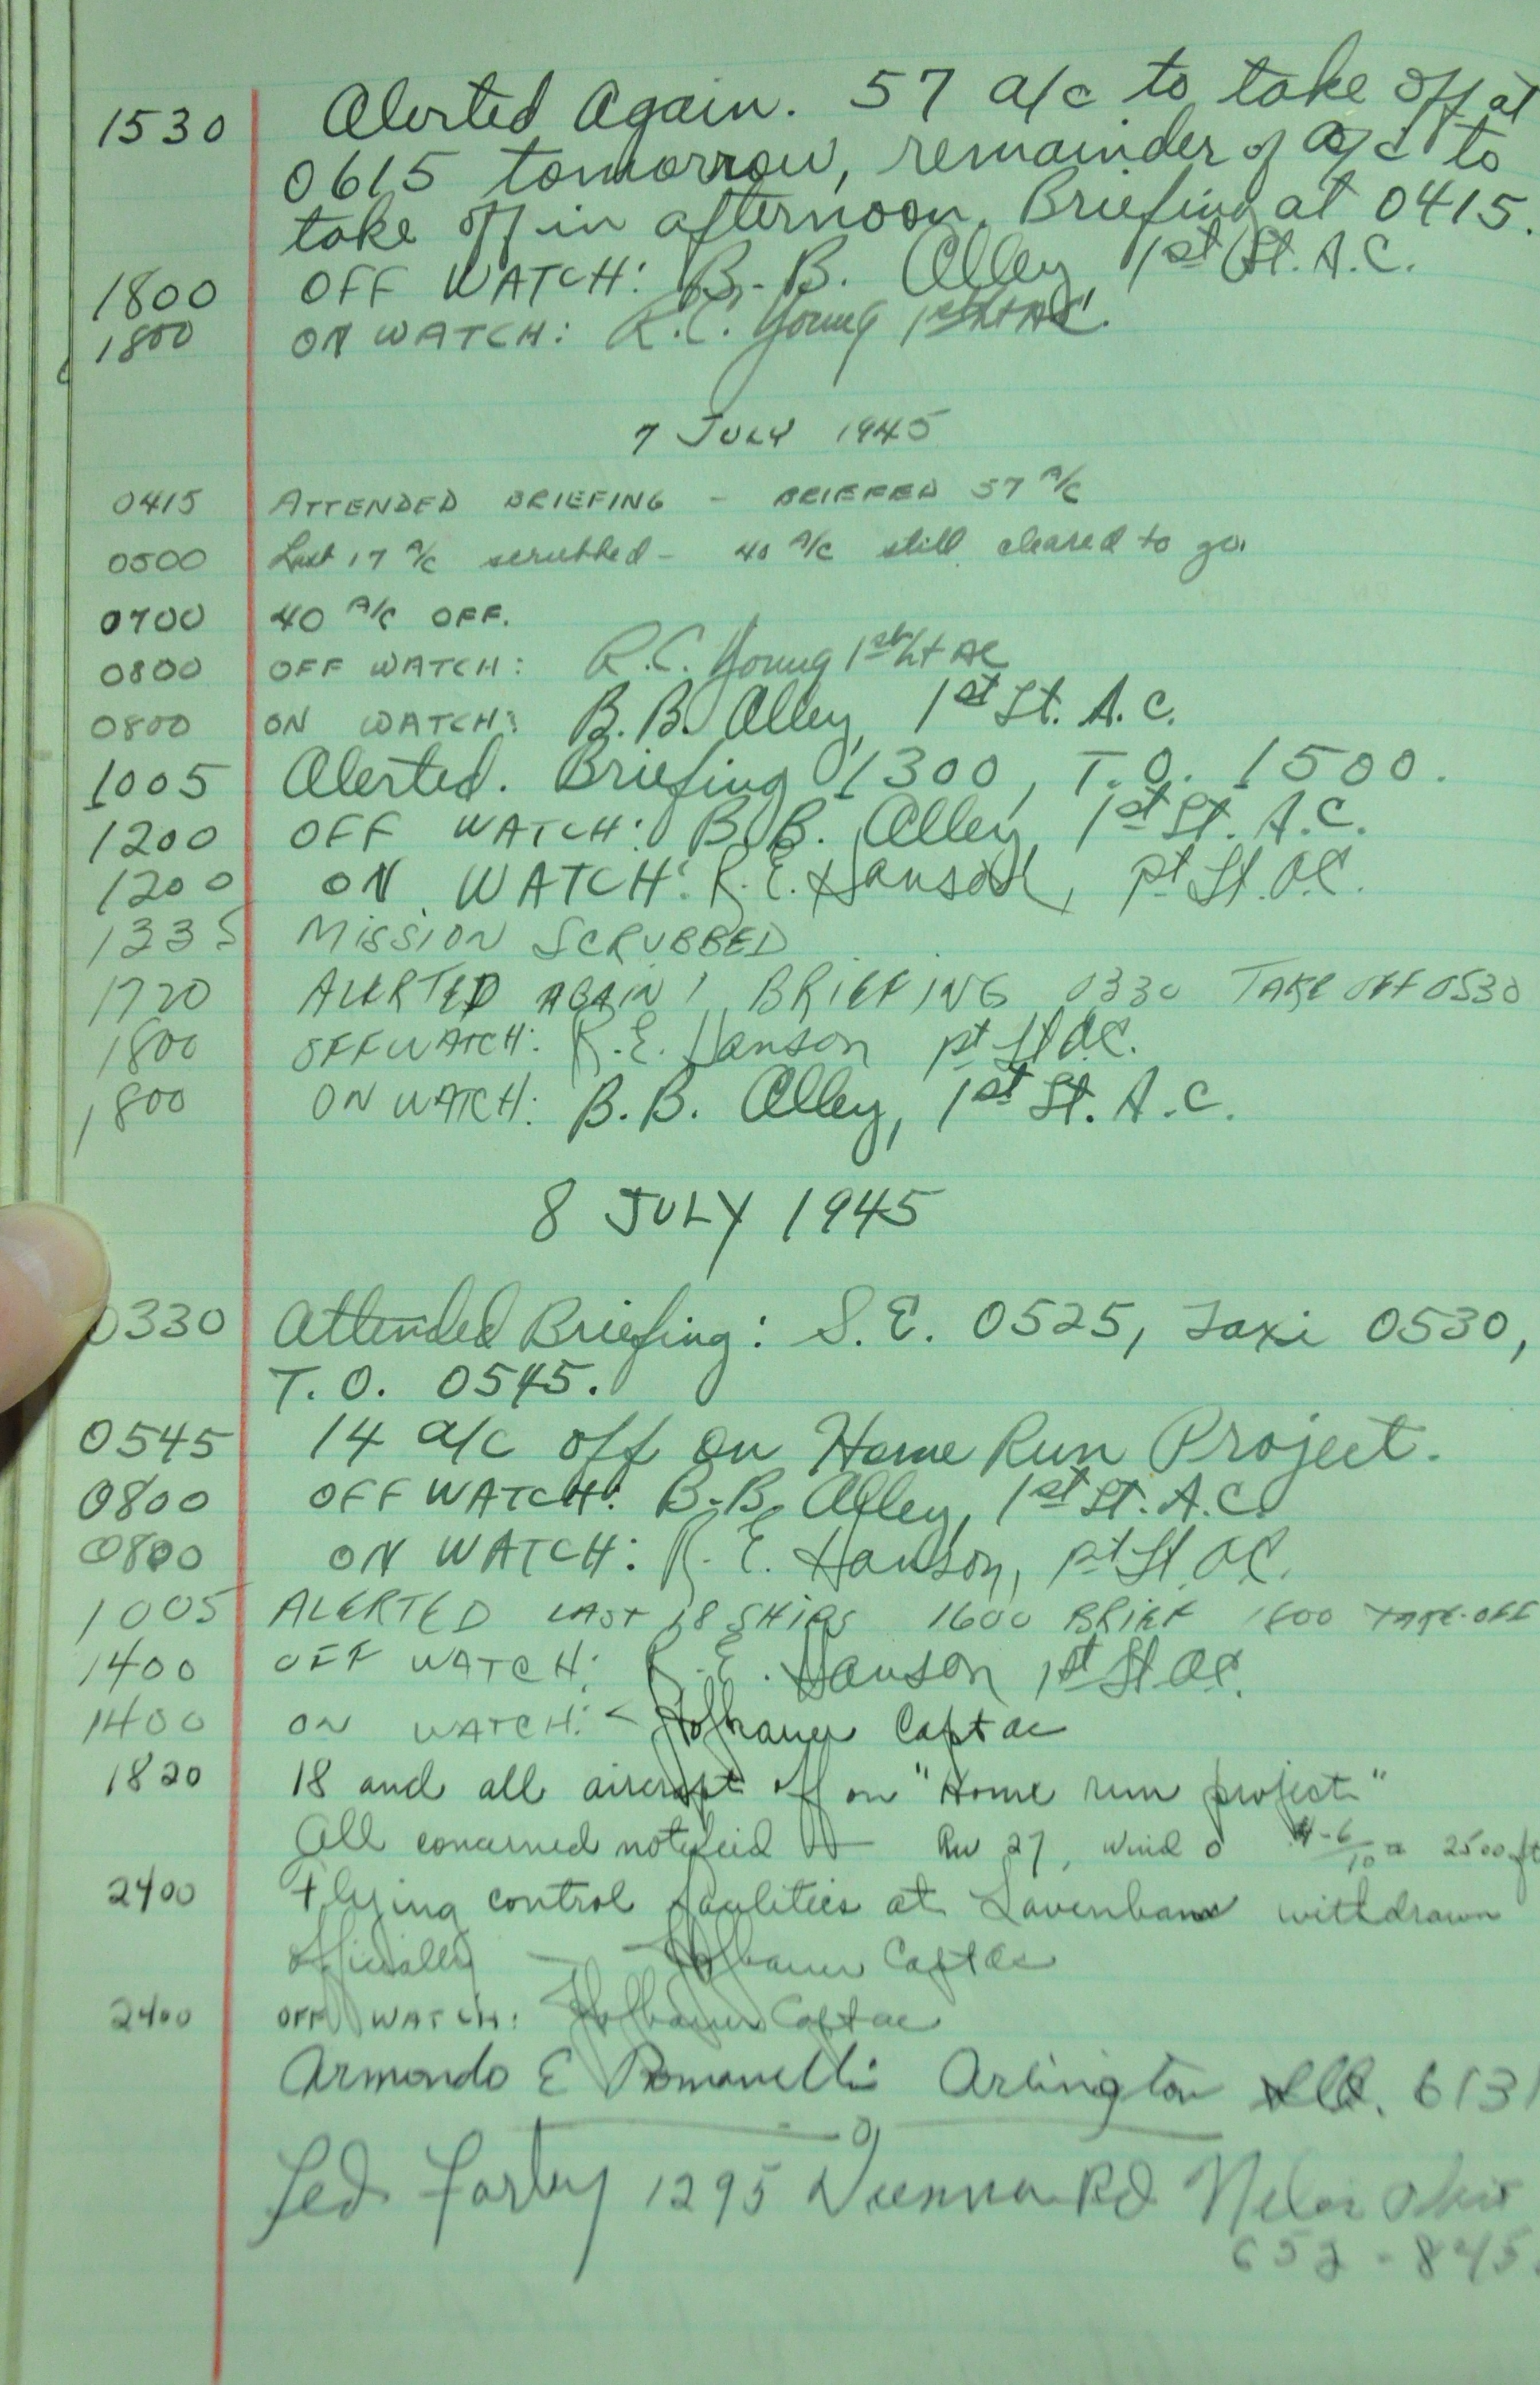 1530 Alerted Again. 57 a/c to take off at
0615 tomorrow, remainder of a/c to
take off in afternoon. Briefing at 0415.
1800 OFF WATCH: B.B. Alley, 1st Lt. A.C.
1800 ON WATCH: R.C. Young 1st Lt AC.
7 JULY 1945
0415 ATTENDED BRIEFING - BRIEFED 57 A/C
0500 Last 17 A/C scrubbed - 40 A/C still cleared to go.
0700 40 A/C OFF.
0800 OFF WATCH: R.C. Young 1st Lt AC
0800 ON WATCH: B.B. Alley, 1st Lt. A.C.
1005 Alerted. Briefing 1300, T.O. 1500.
1200 OFF WATCH: B.B. Alley, 1st Lt. A.C.
1200 ON WATCH: R.E. Hanson, 1st Lt. AC.
1335 MISSION SCRUBBED
1720 ALERTED AGAIN! BRIEFING 0330 TAKE OFF 0530
1800 OFF WATCH: R.E. Hanson 1st Lt AC.
1800 ON WATCH: B.B. Alley, 1st Lt. A.C.
8 JULY 1945
0330 Attended Briefing: S.E. 0525, Taxi 0530,
T.O. 0545.
0545 14 a/c off on Home Run Project.
0800 OFF WATCH: B.B. Alley, 1st Lt. A.C.
0800 ON WATCH: R.E. Hanson, 1st Lt. AC.
1005 ALERTED LAST 18 SHIPS 1600 BRIEF 1800 TAKE-OFF
1400 OFF WATCH: R.E. Hanson 1st Lt AC.
1400 ON WATCH: Capt ac
1820 18 and all aircraft off on "Home run project"
All concerned notifeid — RW 27, Wind 0 4-6/10 2500 ft
2400 Flying control facilities at Lavenham withdrawn
officially — Capt ac
2400 OFF WATCH: Capt ac
Armando E Romanelli Arlington 6131
Ted 1295 Vienna Rd Niles Ohio
652-845